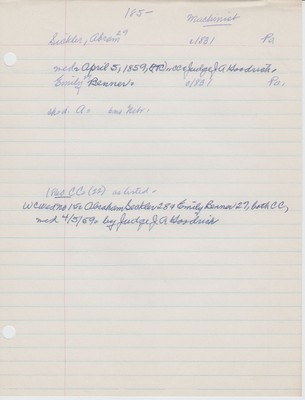 185-
Machinist
Sickler, Abram 29 c1831 Pa
med. April 5, 1859, CC by Judge J A Goodrich.
Emily Benner. c1831 Pa.
died. A. Nebr.
1860 CC (28) as listed.
WC Wed No 150 Abraham Seckler 28 & Emily Benner 27, both CC,
med 4/5/59. by Judge J A Goodrich